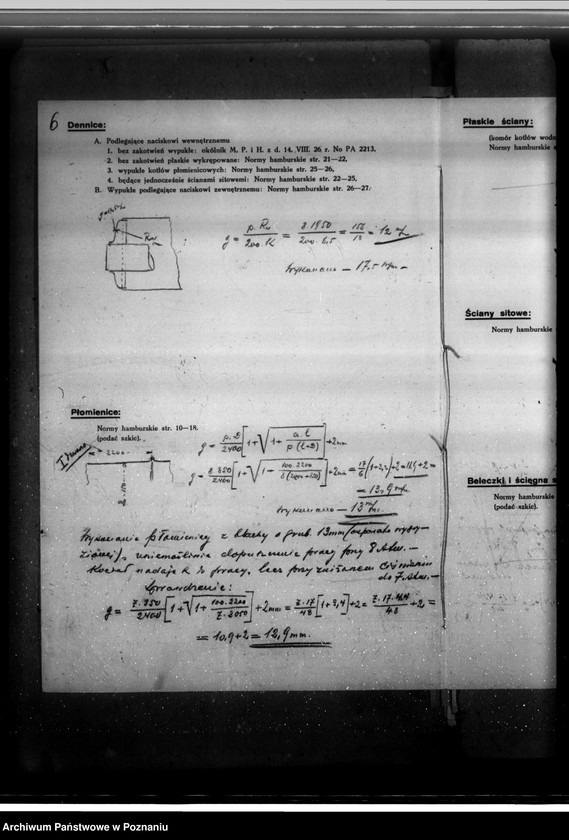 6
Dennice:
A. Podlegające naciskowi wewnętrznemu
1. bez zakotwień wypukłe: okólnik M. P. i H. z d. 14. VIII. 26 r. No PA 2213.
2. bez zakotwień płaskie wykrępowane: Normy hamburskie str. 21—22,
3. wypukłe kotłów płomiesicowych: Normy hamburskie str. 25—26,
4. będące jednocześnie ścianami sitowemi: Normy hamburskie str. 22—25,
B. Wypukłe podlegające naciskowi zewnętrznemu: Normy hamburskie str. 26—27.
g = p. Rw / 200. K = 8. 1950 / 200. 6,5 = 156 / 13 = 12 m/m
Wykonano — 17,5 m/m —
Płomienice:
Normy hamburskie str. 10—18.
(podać szkic).
2200
g = p. D / 2400 [1 + √1 + a. l / p (l+D)] + 2 mm
= 13,9 m/m
Wykonano — 13 m/m.
Wykonanie płomienicy z blachy o grub. 13mm
uniemożliwia dopuszczenie pracy przy 8 Atm. —
Kocioł nadaje się do pracy, lecz przy zniżonem ciśnieniu
do 7. Atm. —
Sprawdzenie:
g = 7. 850 / 2400 [1 + √1 + 100. 2200 / 7. 3050] + 2 mm = 7. 17 / 48 [1 + 3,4] + 2 = 7. 17. 4,4 / 48 + 2 =
= 10,9 + 2 = 12,9 mm.
Płaskie ściany:
(komór kotłów
Normy hamburskie
Ściany sitowe:
Normy hamburskie
Beleczki i ścięgna
Normy hamburskie
(podać szkic).
Archiwum Państwowe w Poznaniu